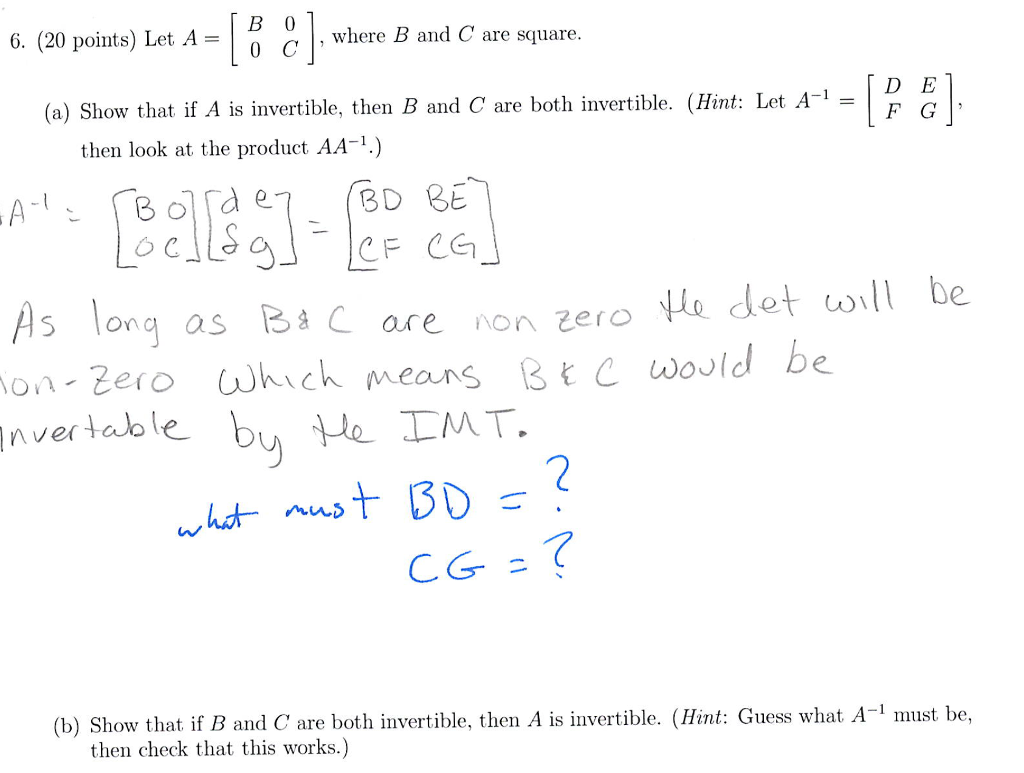 6. (20 points) Let A = [ B 0 ; 0 C ], where B and C are square.
(a) Show that if A is invertible, then B and C are both invertible. (Hint: Let A⁻¹ = [ D E ; F G ],
then look at the product AA⁻¹.)
A⁻¹ = [ B 0 ; 0 C ] [ d e ; f g ] = [ BD BE ; CF CG ]
As long as B & C are non zero the det will be
on-zero which means B & C would be
invertable by the IMT.
what must BD = ?
CG = ?
(b) Show that if B and C are both invertible, then A is invertible. (Hint: Guess what A⁻¹ must be,
then check that this works.)